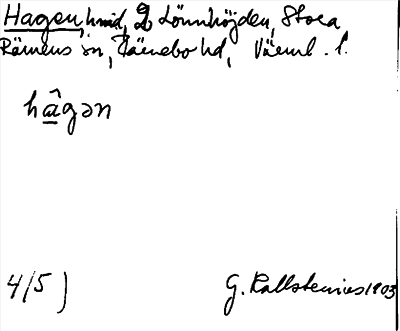 Hagen, hmd, Lönnhöjden, Stora
Rämens sn, Färnebo hd, Värml. l.
hâgən
4/5)
G. Kallstenius 1903